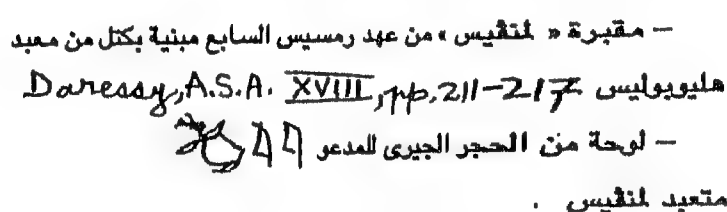 – مقبرة « لمنڤيس » من عهد رمسيس السابع مبنية بكتل من معبد
هليوبوليس Daressy, A.S.A. XVIII, pp. 211-217
– لوحة من الحجر الجيرى للمدعو
متعبد لمنڤيس .